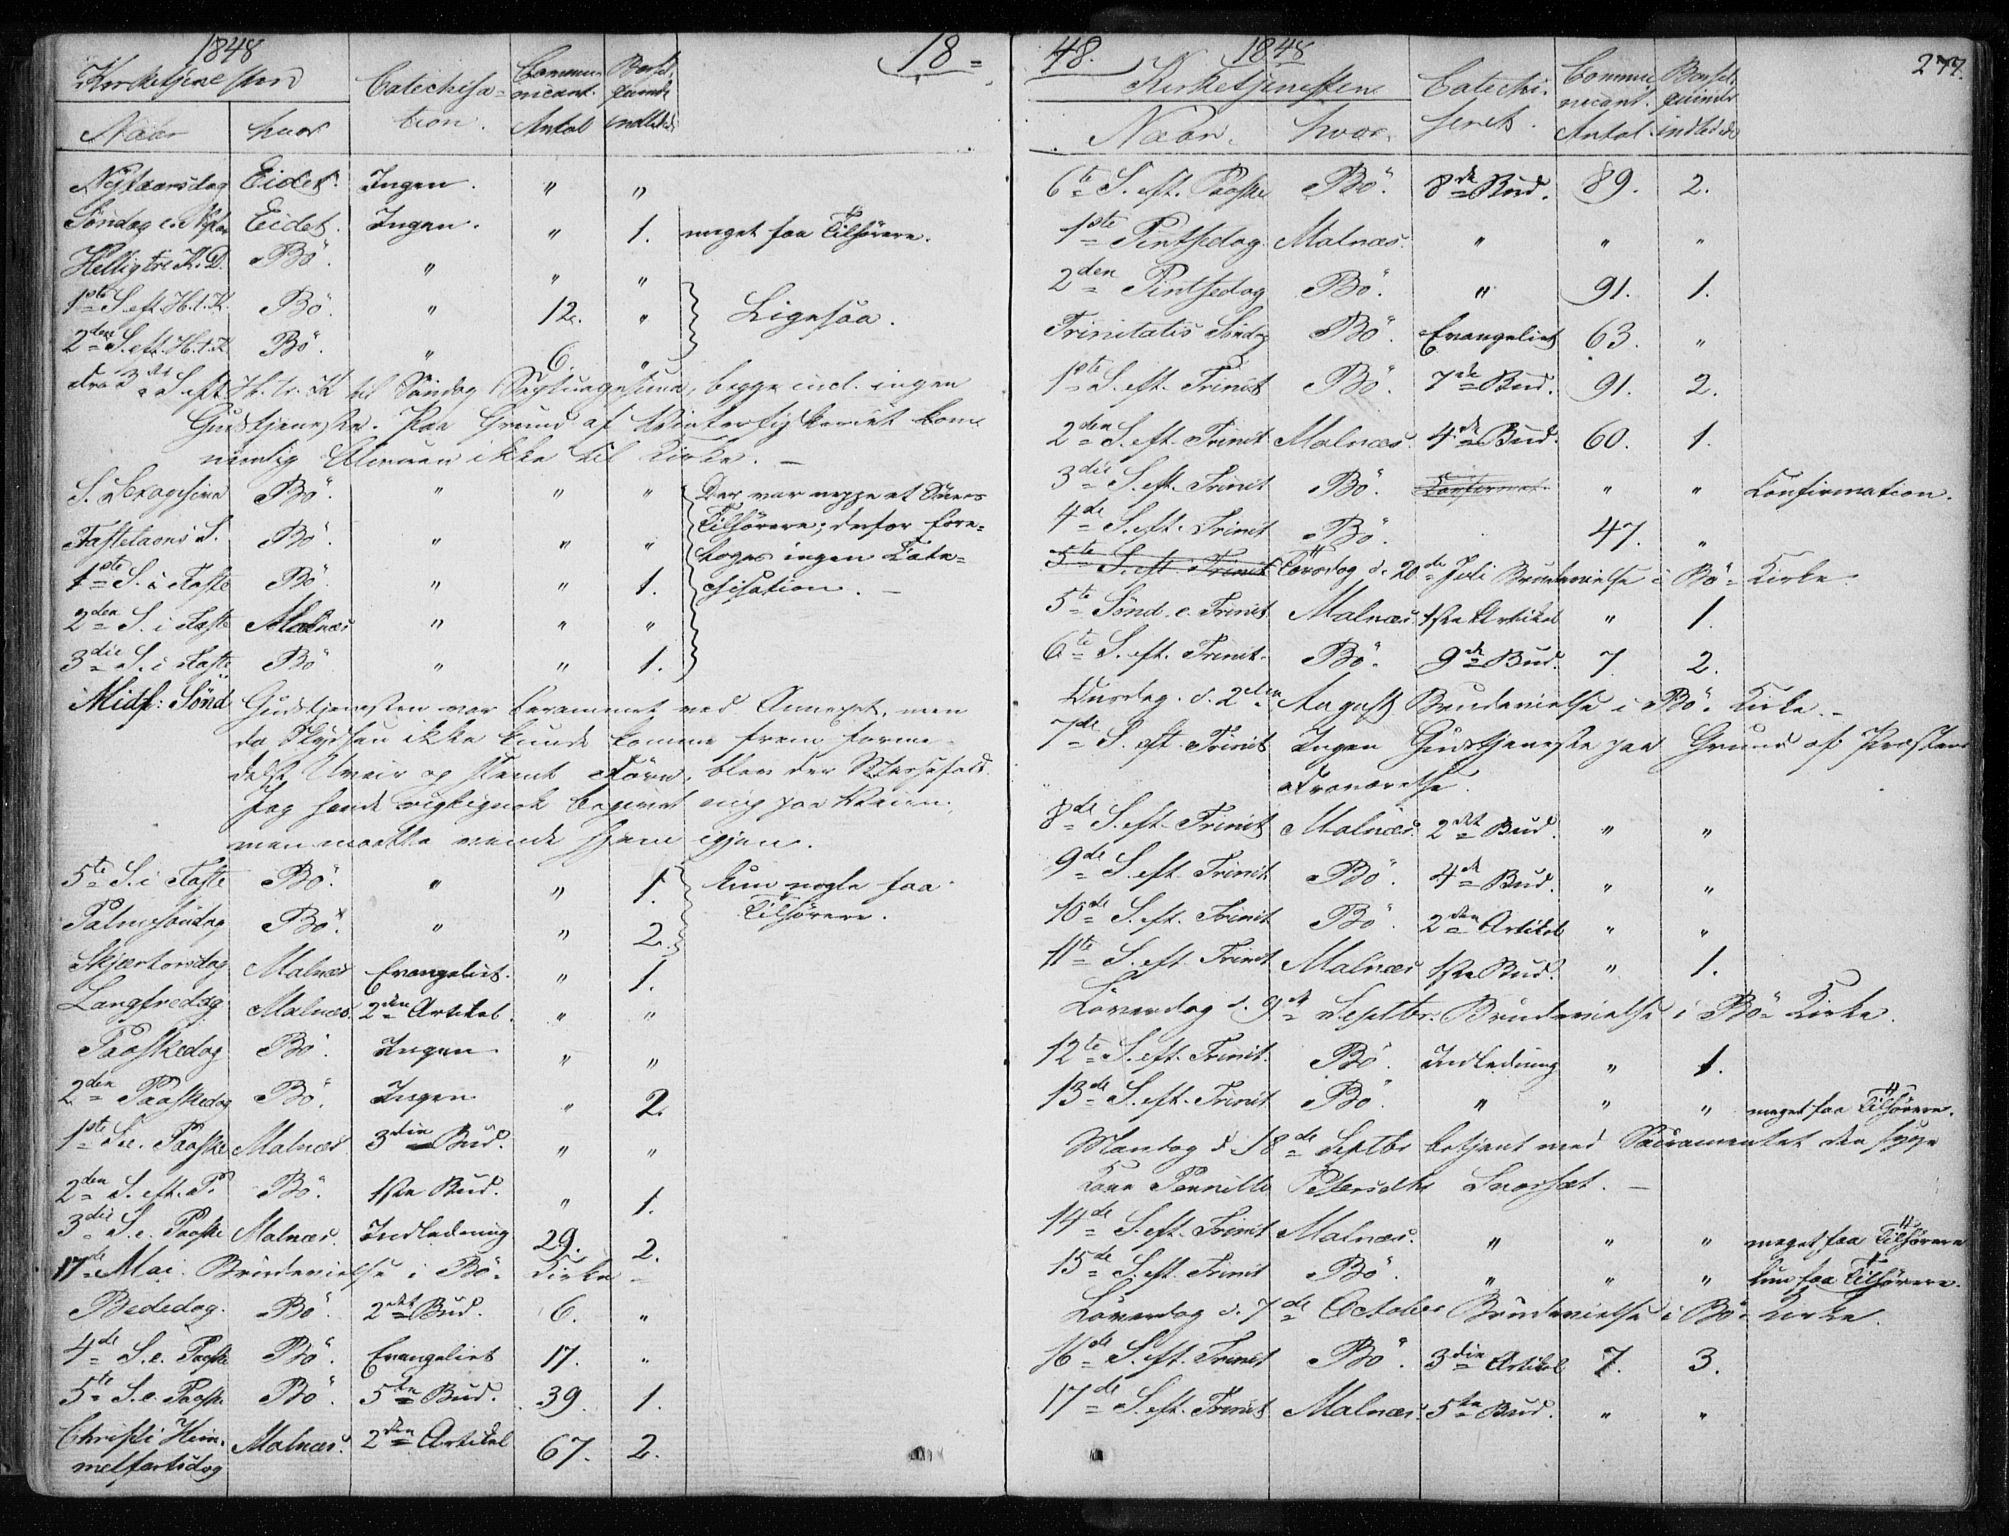 1848
Kirketjenesten
Catechisa-
tion.
Commu-
nicant.
Antal
Barsel-
quinder
indledede
18=
Naar
hvor
Nytaarsdag Eidet. Ingen. " "
Søndag e. Nytaar Eidet. Ingen. " 1. meget faa Tilhørere.
Hellig tre K. D. Bö. " " "
1ste S. eft. H. t. K. Bö. " 12. "
Ligesaa.
2den S. eft. H. t. K. Bö. " 6. "
Fra 3die S. eft. H. tr. K til Søndag Septuagesima, begge incl. ingen
Gudstjeneste. Paa Grund af Vinterfiskeriet kom
nemlig Almuen ikke til Kirke. —
S. Sexagesima Bö. " " " Der var neppe et Snees
Tilhørere; derfor fore-
Fastelavns S. Bö. " " " toges ingen Cate-
1ste S. i Faste Bö. " " 1. chisation. —
2den S. i Faste Malnæs " " "
3die S. i Faste Bö " " 1.
Midf: Sönd Gudstjenesten var berammet ved Annexet, men
da Skydsen ikke kunde komme frem forme-
delst Uveir og slemt Føre, blev der Messefald.
Jeg havde rigtignok begivet mig paa Veien,
men maatte vende hjem igjen.
5te S. i Faste Bö. " " 1. Kun nogle faa
Tilhørere.
Palmesöndag Bö. " " 2.
Skjærtorsdag Malnæs Evangeliet. " 1.
Langfredag Malnæs. 2den Artikel. " "
Paaskedag Bö. Ingen " "
2den Paaskedag Bö. Ingen " 2.
1ste S. e. Paaske Malnæs. 3die Bud. " "
2den S. eft. P. Bö. 1ste Bud. " 1.
3die S. e. Paaske Malnæs. Indledning 29. 2.
17de Mai. Brudevielse i Bö- Kirke —
Bededag. Bö. 2det Bud. 6. "
4de S. e. Paaske Bö. Evangeliet 17. "
5te S. e. Paaske Bö. 5te Bud. 39. 1.
Christi Him-
melfartsdag Malnæs. 2den Artikel 67. 2.
48.
1848
277.
Kirketjenesten
Catechi-
seret.
Commu-
nicant.
Antal.
Barsel-
quinder
indledede
Naar.
hvor.
6te S. eft. Paaske Bö. 8de Bud. 89. 2.
1ste Pintsedag. Malnæs. " " "
2den Pintsedag Bö. " 91. 1.
Trinitatis Söndag Bö. Evangeliet 63. "
1ste S. eft. Trinit Bö. 7de Bud. 91. 2.
2den S. eft. Trinit Malnæs. 4de Bud. 60. 1.
3die S. eft. Trinit Bö. Confirmat. " " Confirmation.
4de S. eft. Trinit Bö. 47. "
5te S. eft. Trinit Torsdag d. 20de Juli Brudevielse i Bö- Kirke.
5te Sönd. e. Trinit Malnæs. 1ste Artikel " 1.
6te S. eft. Trinit. Bö. 9de Bud. 7. 2.
Onsdag. d. 2den August Brudevielse i Bö- Kirke. —
7de S. eft. Trinit Ingen Gudstjeneste paa Grund af Præstens
Fraværelse.
8de S. eft. Trinit Malnæs. 2det Bud. " "
9de S. eft. Trinit. Bö. 4de Bud. " "
10de S. eft. Trinit Bö. 2den Artikel " "
11te S. eft. Trinit. Malnæs 1ste Bud. " 1.
Löverdag d. 9de Septbr. Brudevielse i Bö- Kirke.
12te S. eft. Trinit. Bö. Indledning " 1.
13de S. eft. Trinit Bö. " " " meget faa Tilhørere.
Mandag d. 18de Septbr betjent med Sacramentet den syge
Kone Pernille Pedersdtr . —
14de S. eft. Trinit Malnæs. " " " meget faa Tilhørere
15de S. eft. Trinit Bö. " " " kun faa Tilhørere.
Löverdag d. 7de October Brudevielse i Bö- Kirke.
16de S. eft. Trinit Bö. 3die Artikel 7. 3.
17de S. eft. Trinit Malnæs. 5te Bud. " "